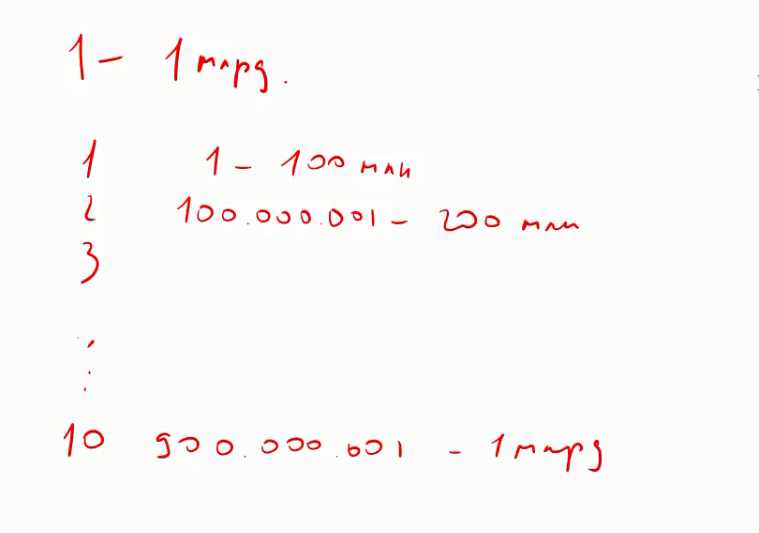 1 - 1 млрд.
1 1 - 100 млн
2 100.000.001 - 200 млн
3
10 900.000.001 - 1 млрд